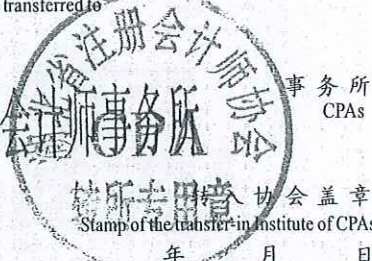 transferred to
省注册会计师协会
会计师事务所
事务所
CPAs
转所专用章
转入协会盖章
Stamp of the transfer-in Institute of CPAs
年 月 日